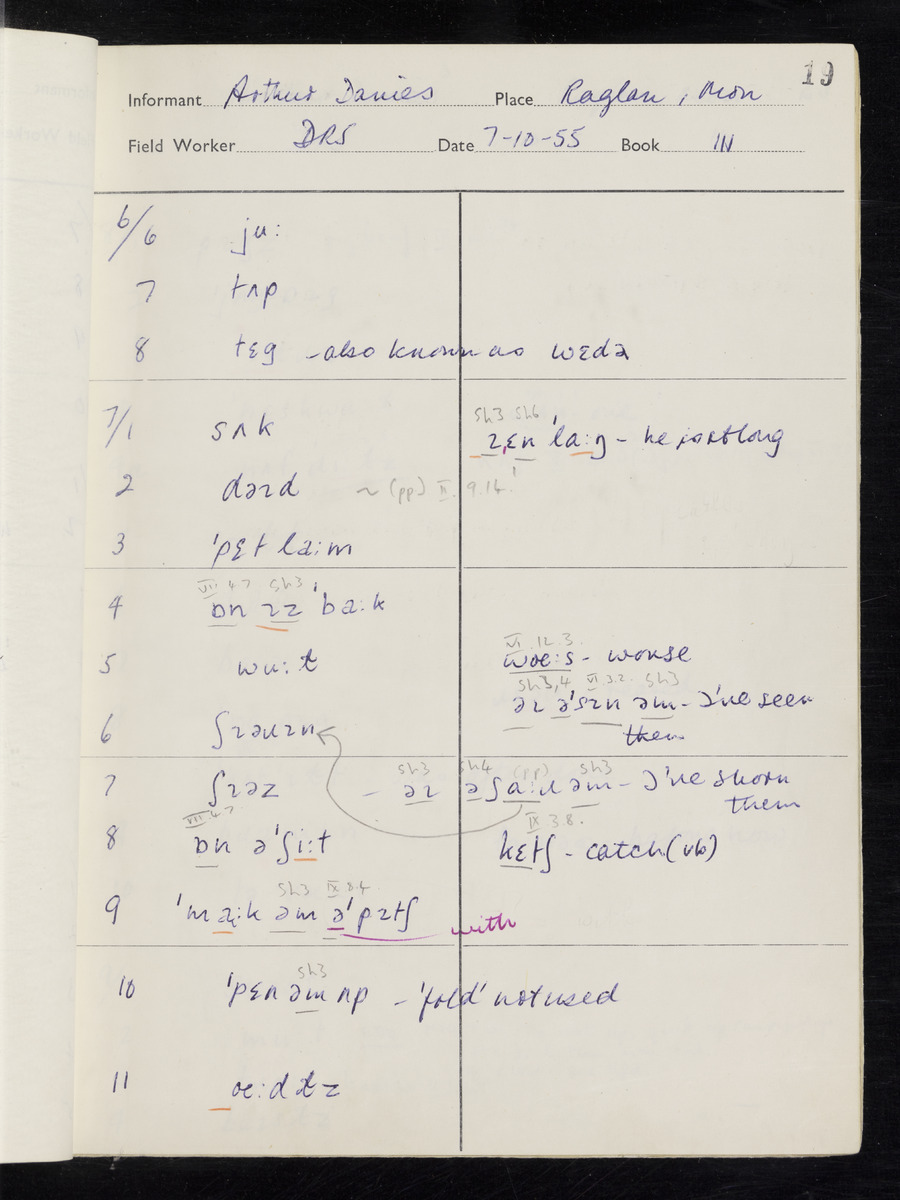 19
Informant Arthur Davies Place Raglan, Mon
Field Worker DRS Date 7-10-55 Book III
6/6 ju:
7 tʌp
8 tɛg - also known as wɛdə
Sh3 Sh6
7/1 sʌk ɪzɛn 'la:ŋ - he isn't long
2 dəɪd ~ (pp) II. 9.14.
3 'pɛt la:m
VII. 4.7 Sh3
4 ɒn ɪz 'ba:k
VI. 12.3.
5 wu:t wœ:s - worse
Sh3,4 VI.3.2. Sh3
6 ʃɪəɹɪn əɪ ə'sɪn əm - I've seen them
Sh3 Sh4 (pp) Sh3
7 ʃɪəz - əɪ əʃa:ɹ əm - I've shorn them
VII. 4.7. IX 3.8.
8 ɒn ə'ʃi:t kɛtʃ - catch (vb)
Sh3 IX 8.4.
9 'ma:k əm ə'pɪtʃ with
Sh3
10 'pɛn əm ʌp - 'fold' not used
11 œ:dɪz